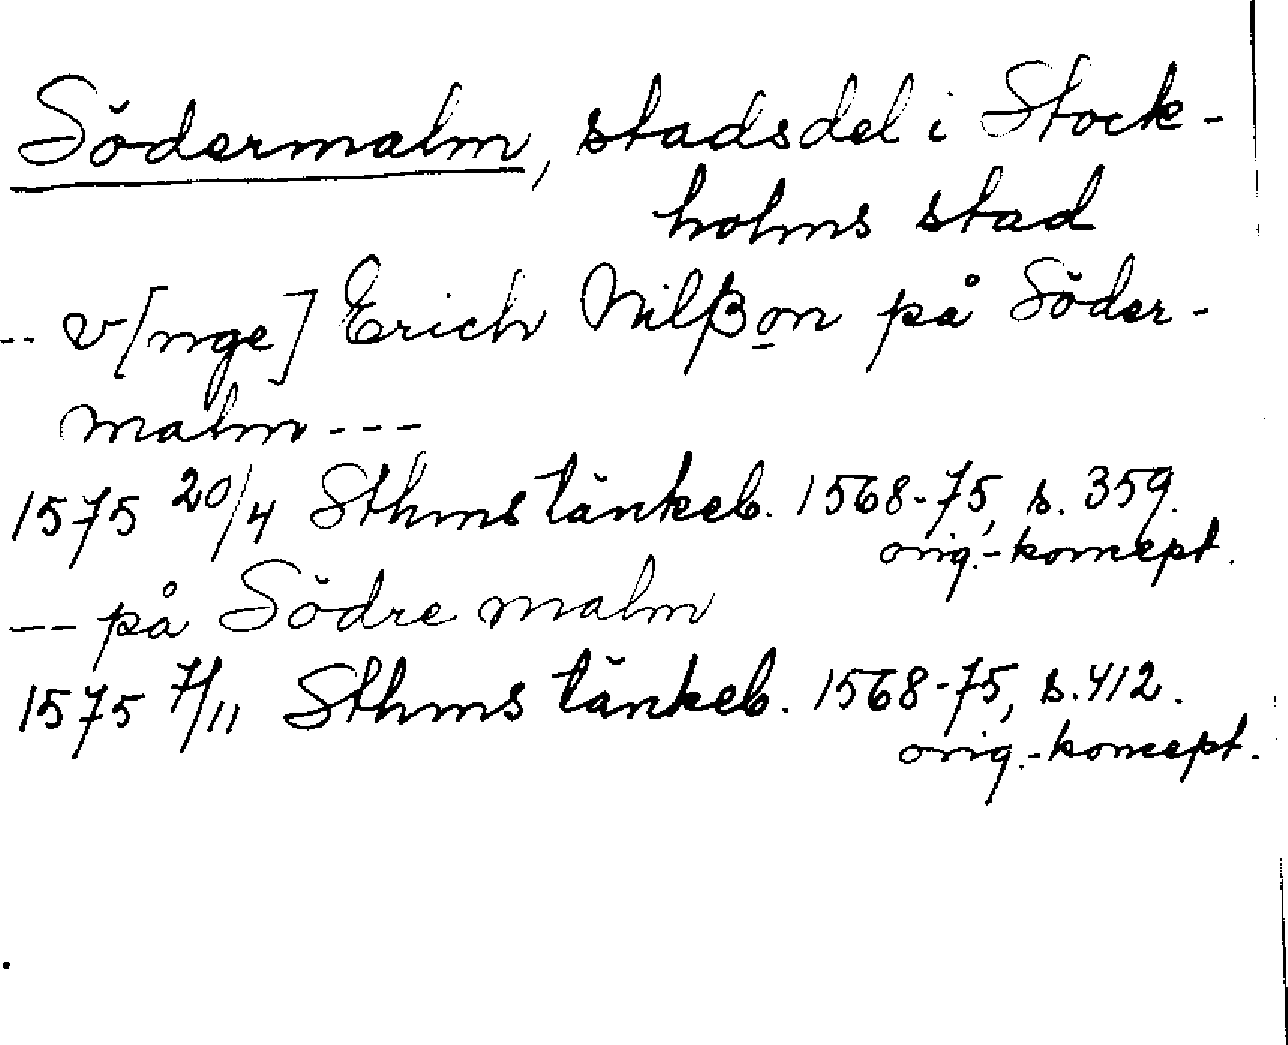 Södermalm, stadsdel i Stock-
holms stad
-- v[nge] Erich Nilßon på Söder-
malm ---
1575 20/4 Sthms tänkeb. 1568-75, s. 359.
orig.-koncept.
-- på Södre malm
1575 7/11 Sthms tänkeb. 1568-75, s. 412.
orig.-koncept.